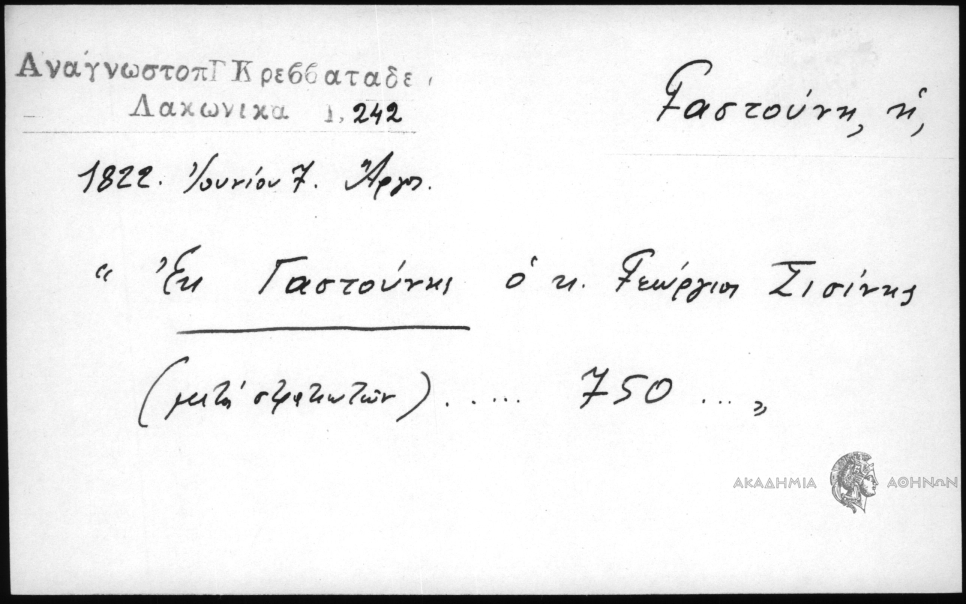 ΑναγνωστοπΓΚρεββαταδε
Λακωνικα 1, 242
Γαστούνη, ἡ,
1822. Ἰουνίου 7. Ἄργος.
“ Ἐκ Γαστούνης ὁ κ. Γεώργιος Σισίνης
(μετὰ στρατιωτῶν) ..... 750 ... „
ΑΚΑΔΗΜΙΑ ΑΘΗΝΩΝ